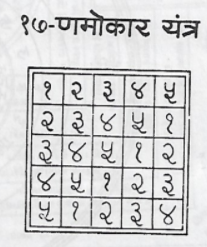 १७-णमोकार यंत्र
१ २ ३ ४ ५
२ ३ ४ ५ १
३ ४ ५ १ २
४ ५ १ २ ३
५ १ २ ३ ४